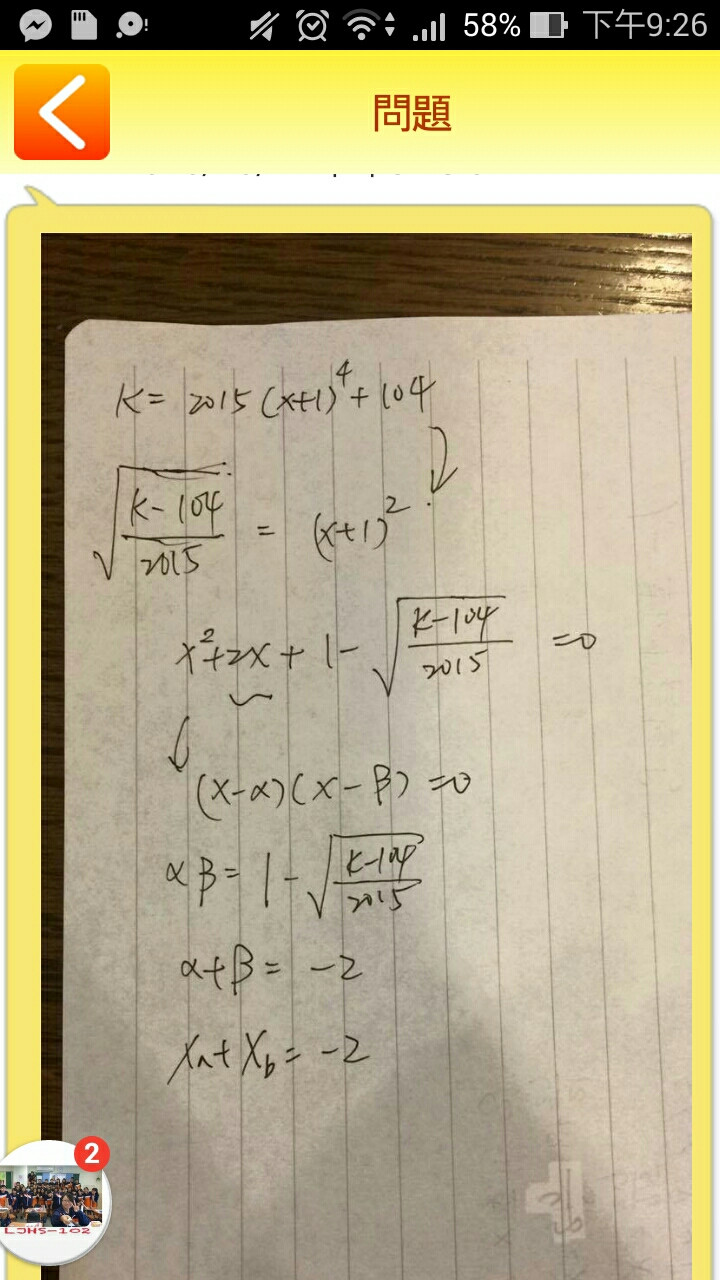 58% 下午9:26
問題
K = 2015 (x+1)^4 + 104
√((K-104)/2015) = (x+1)^2
x^2+2x+1-√((K-104)/2015) =0
(x-α)(x-β)=0
αβ= 1-√((K-104)/2015)
α+β= -2
Xa+Xb= -2
2
LJHS-102